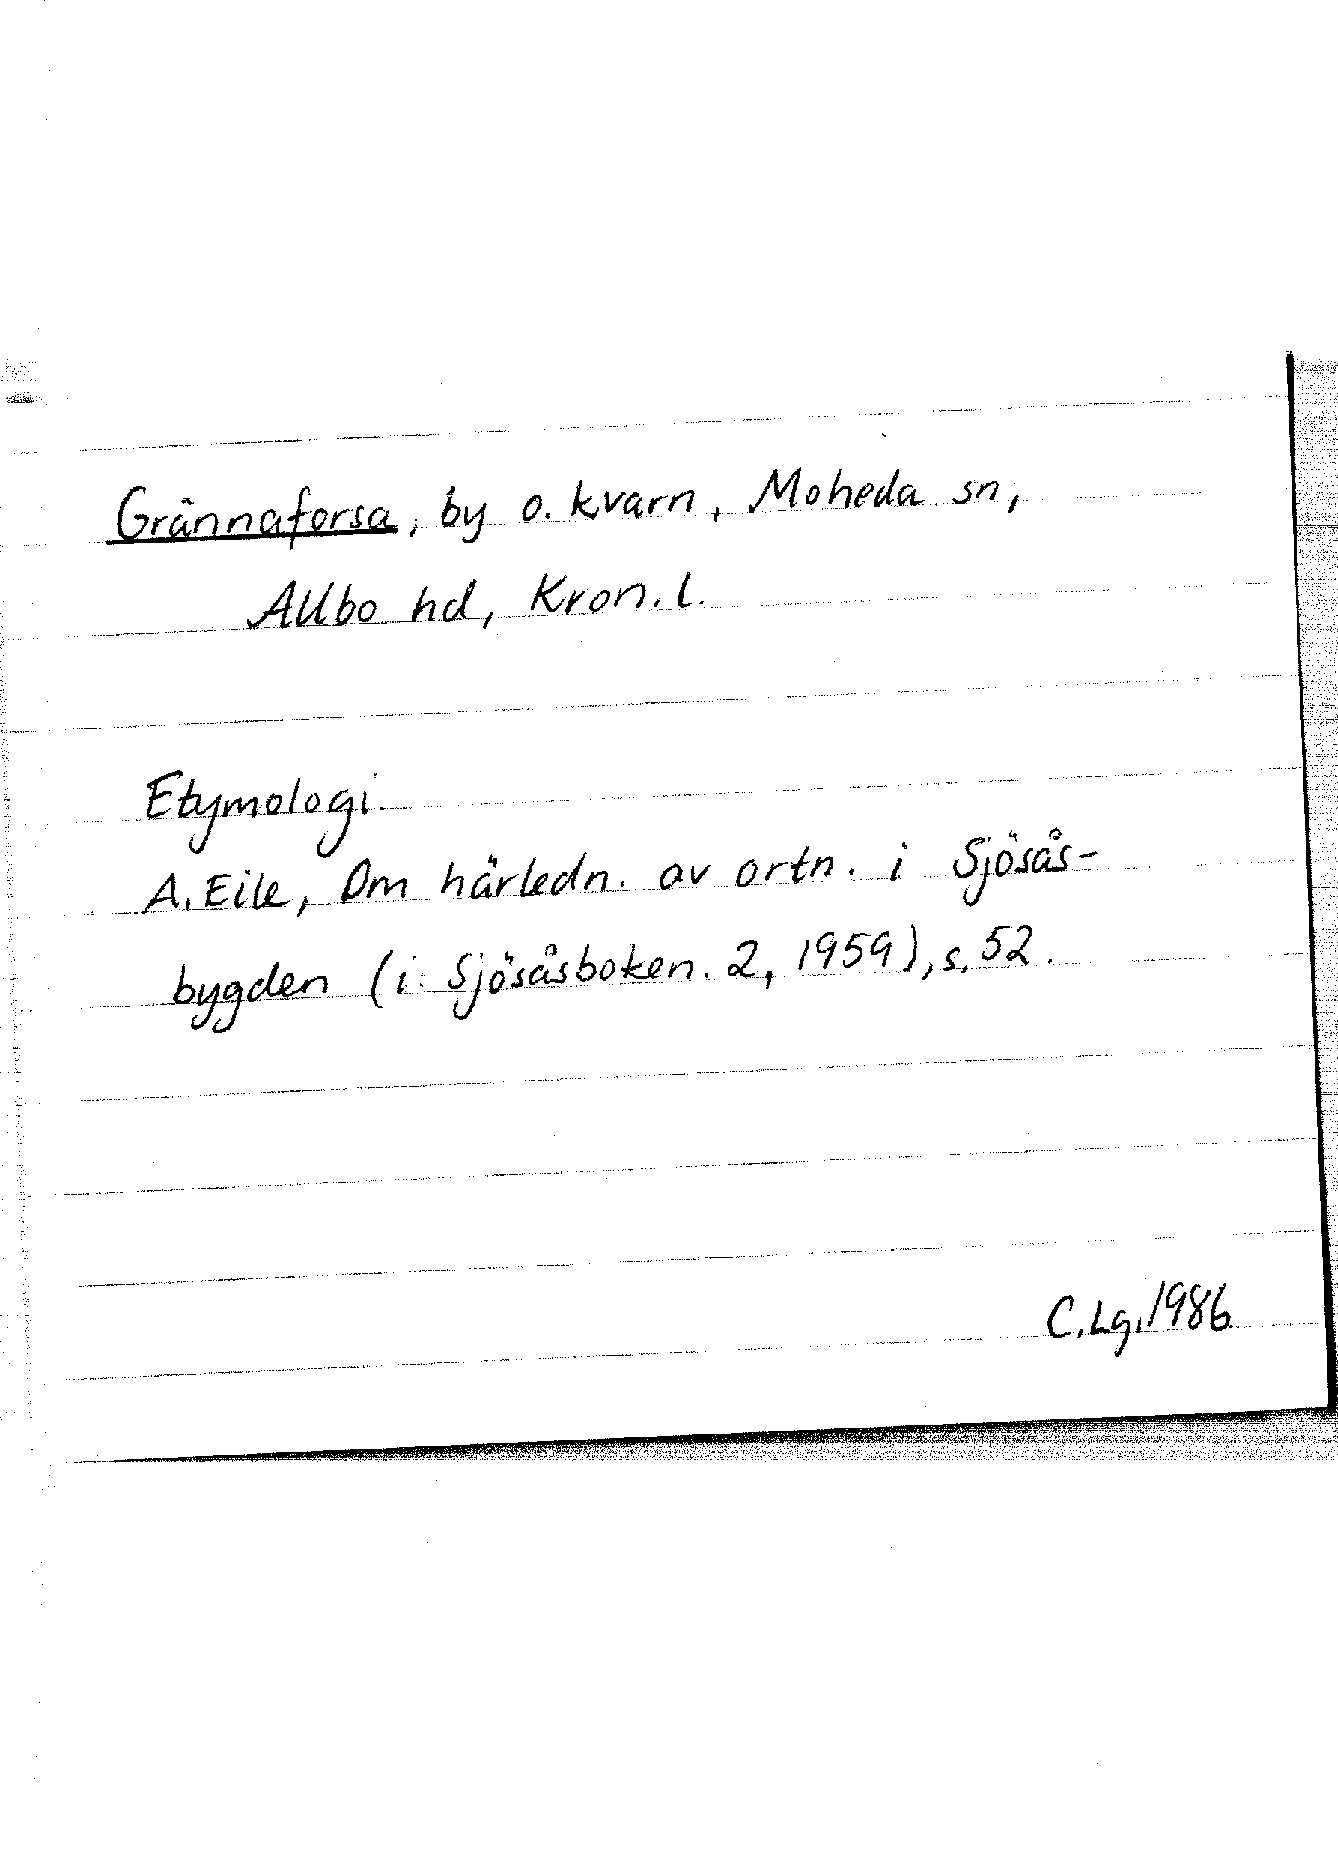 Grännaforsa, by o. kvarn, Moheda sn,
Allbo hd, Kron. l.
Etymologi.
A. Eile, Om härledn. av ortn. i Sjösås-
bygden (i: Sjösåsboken. 2, 1959), s. 52.
C. Lg. 1986